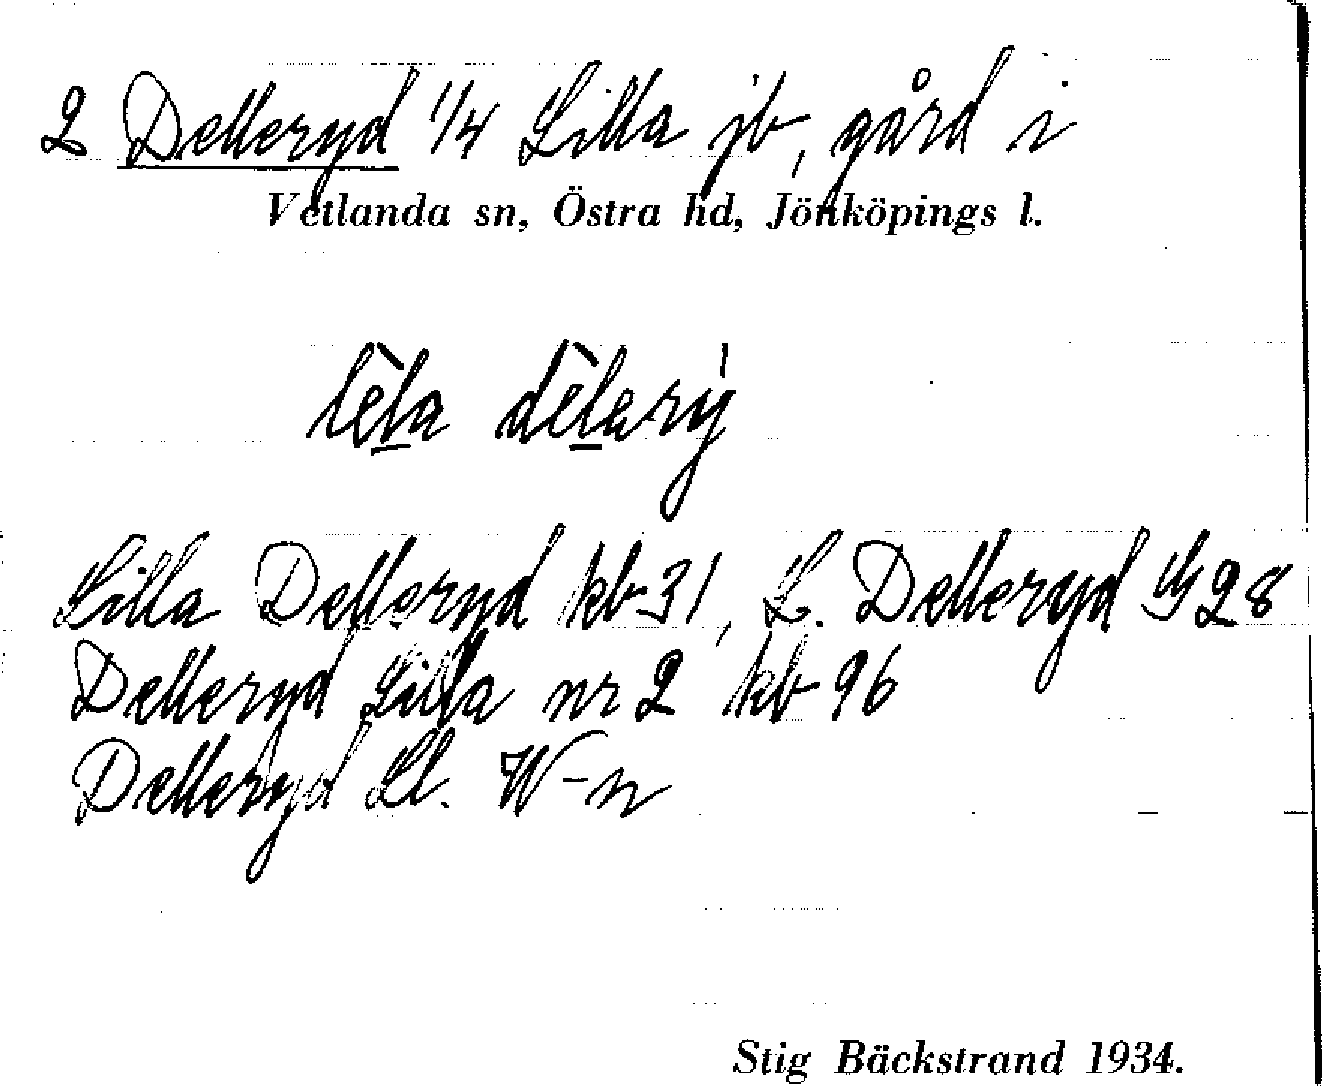 2 Delleryd 1/4 Lilla jb, gård i
Vetlanda sn, Östra hd, Jönköpings l.
lèl̲a dèl̲ary̍
Lilla Delleryd kb 31, L. Delleryd G 28
Delleryd Lilla nr 2 kb 96
Delleryd Ll. W-n
Stig Bäckstrand 1934.